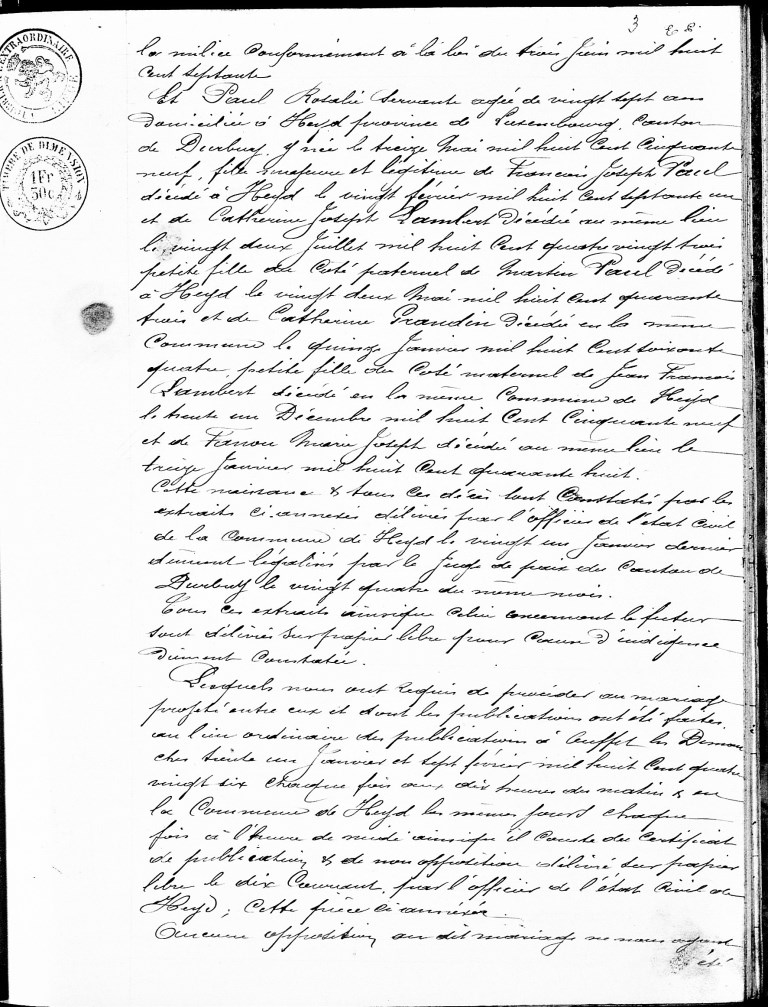 3
la milice conformément à la loi du trois Juin mil huit
cent septante
Et Paul Rosalie Servante agée de vingt sept ans
domiciliée à Heyd province de Luxembourg, canton
de Durbuy, y née le treize Mai mil huit cent cinquante
neuf, fille majeure et légitime de Francois Joseph Paul
décédé à Heyd le vingt février mil huit cent septante un
et de Catherine Joseph Lambert Décédée au même lieu
le vingt deux Juillet mil huit cent quatre vingt trois
petite fille du coté paternel de Martin Paul Décédé
à Heyd le vingt deux Mai mil huit cent quarante
trois et de Catherine Grandin Décédée en la même
Commune le quinze Janvier mil huit cent soixante
quatre, petite fille du coté maternel de Jean Francois
Lambert décédé en la même Commune de Heyd
le trente un Décembre mil huit cent cinquante neuf
et de Fanon Marie Joseph décédée au même lieu le
treize Janvier mil huit cent quarante huit.
Cette naissance & tous ces décès sont Constatés par les
extraits ci-annexés délivrés par l'officier de l'état civil
de la commune de Heyd le vingt un Janvier dernier
dûment légalisés par le Juge de paix du Canton de
Durbuy le vingt quatre du même mois.
Tous ces extraits ainsique celui concernant le futur
sont délivrés sur papier libre pour cause d'indigence
dûment Constatée.
Lesquels nous ont requis de procéder au mariage
projeté entre eux et dont les publications ont été faites
au lieu ordinaire des publications à Ouffet les Diman
ches trente un Janvier et sept février mil huit cent quatre
vingt six chaque fois aux dix heures du matin & en
la Commune de Heyd les mêmes jours chaque
fois à l'heure de midi ainsique il conste du certificat
de publication & de non opposition délivré sur papier
libre le dix Courant, par l'officier de l'état civil de
Heyd; Cette pièce ci-annexée.
Aucune opposition au dit mariage ne nous ayant
été
EXTRAORDINAIRE
TIMBRE DE DIMENSION
1Fr
50c